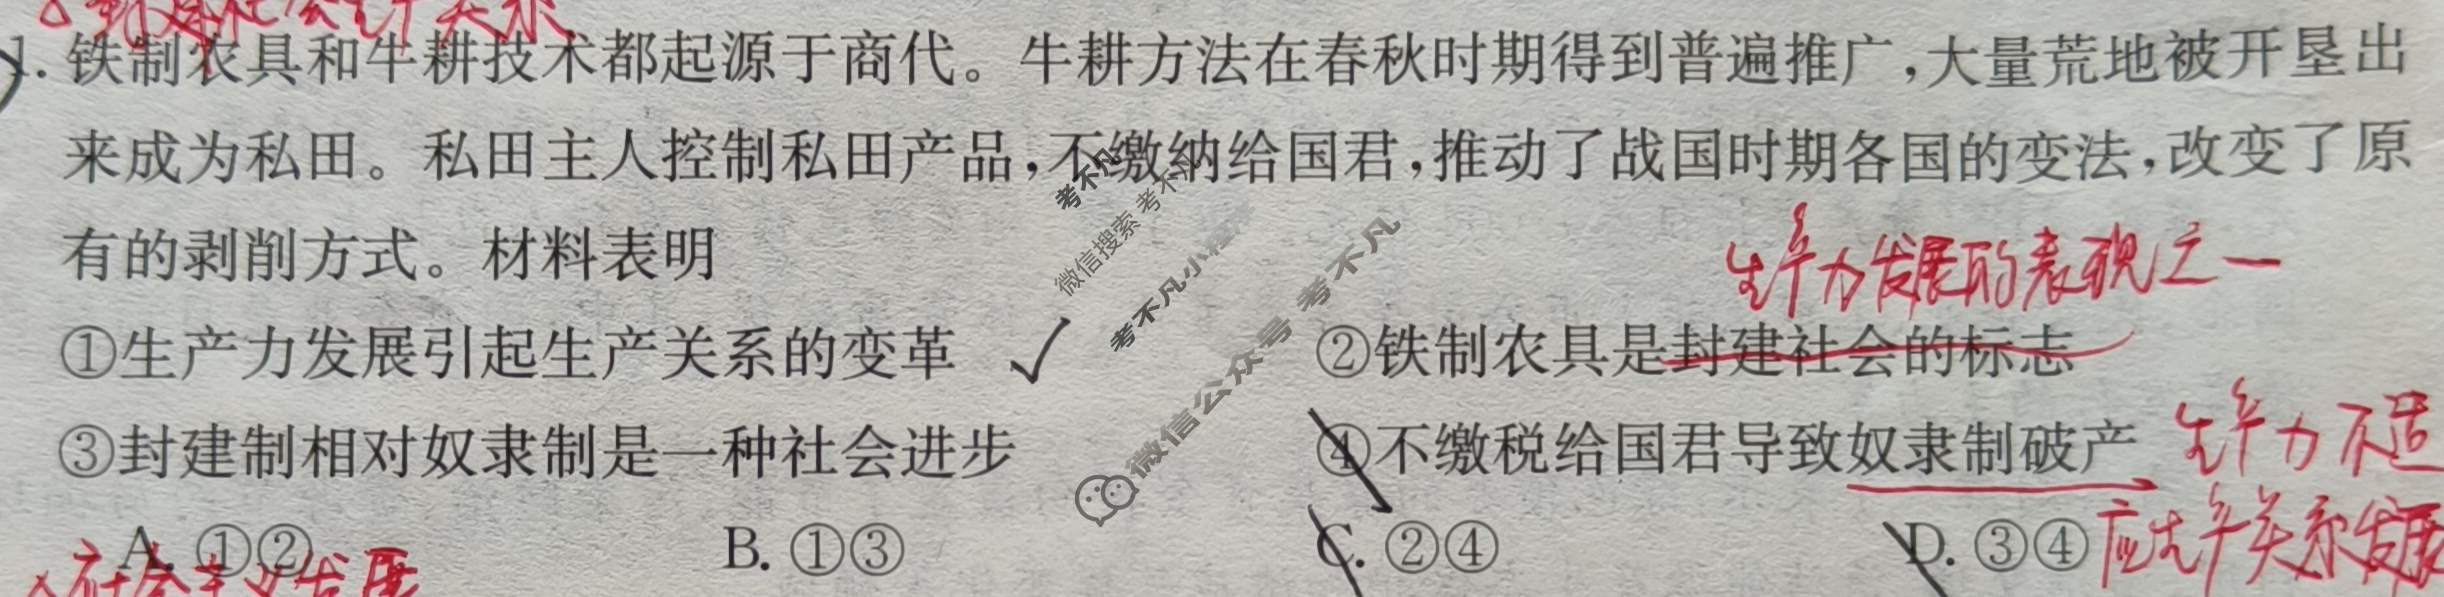 1. 铁制农具和牛耕技术都起源于商代。牛耕方法在春秋时期得到普遍推广,大量荒地被开垦出
来成为私田。私田主人控制私田产品,不缴纳给国君,推动了战国时期各国的变法,改变了原
有的剥削方式。材料表明
生产力发展的表现之一
①生产力发展引起生产关系的变革 ✓ ②铁制农具是封建社会的标志
③封建制相对奴隶制是一种社会进步 ④不缴税给国君导致奴隶制破产 生产力不适
A. ①② B. ①③ C. ②④ D. ③④ 应生产关系发展
社会主义发展
考不凡
微信搜索 考不凡
考不凡小程序
微信公众号 考不凡